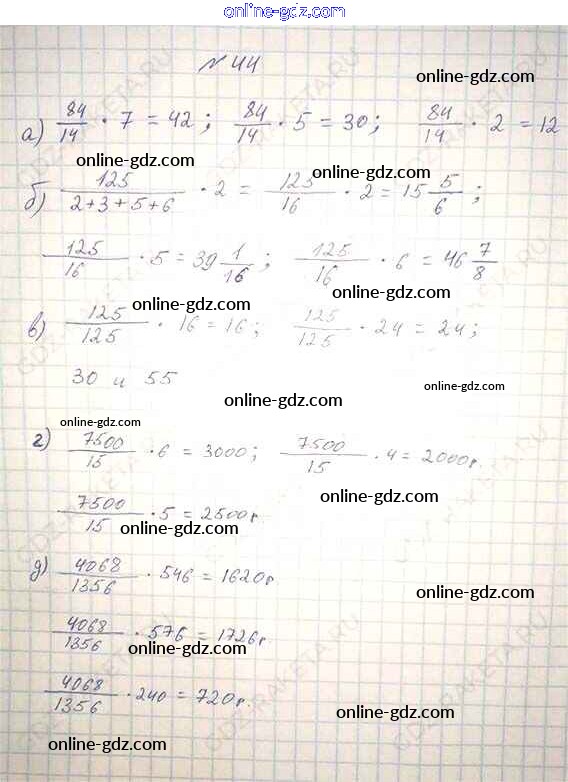 online-gdz.com
№ 44
online-gdz.com
а) 84/14 · 7 = 42; 84/14 · 5 = 30; 84/14 · 2 = 12
online-gdz.com
online-gdz.com
б) 125/(2+3+5+6) · 2 = 125/16 · 2 = 15 5/6;
online-gdz.com
125/16 · 5 = 39 1/16; 125/16 · 6 = 46 7/8
online-gdz.com
online-gdz.com
в) 125/125 · 16 = 16; 125/125 · 24 = 24;
online-gdz.com
30 и 55
online-gdz.com
online-gdz.com
online-gdz.com
г) 7500/15 · 6 = 3000; 7500/15 · 4 = 2000г.
online-gdz.com
7500/15 · 5 = 2500г
online-gdz.com
д) 4068/1356 · 546 = 1620г
online-gdz.com
4068/1356 · 576 = 1726г
online-gdz.com
4068/1356 · 240 = 720г.
online-gdz.com
online-gdz.com
GDZ-RAKETA.RU